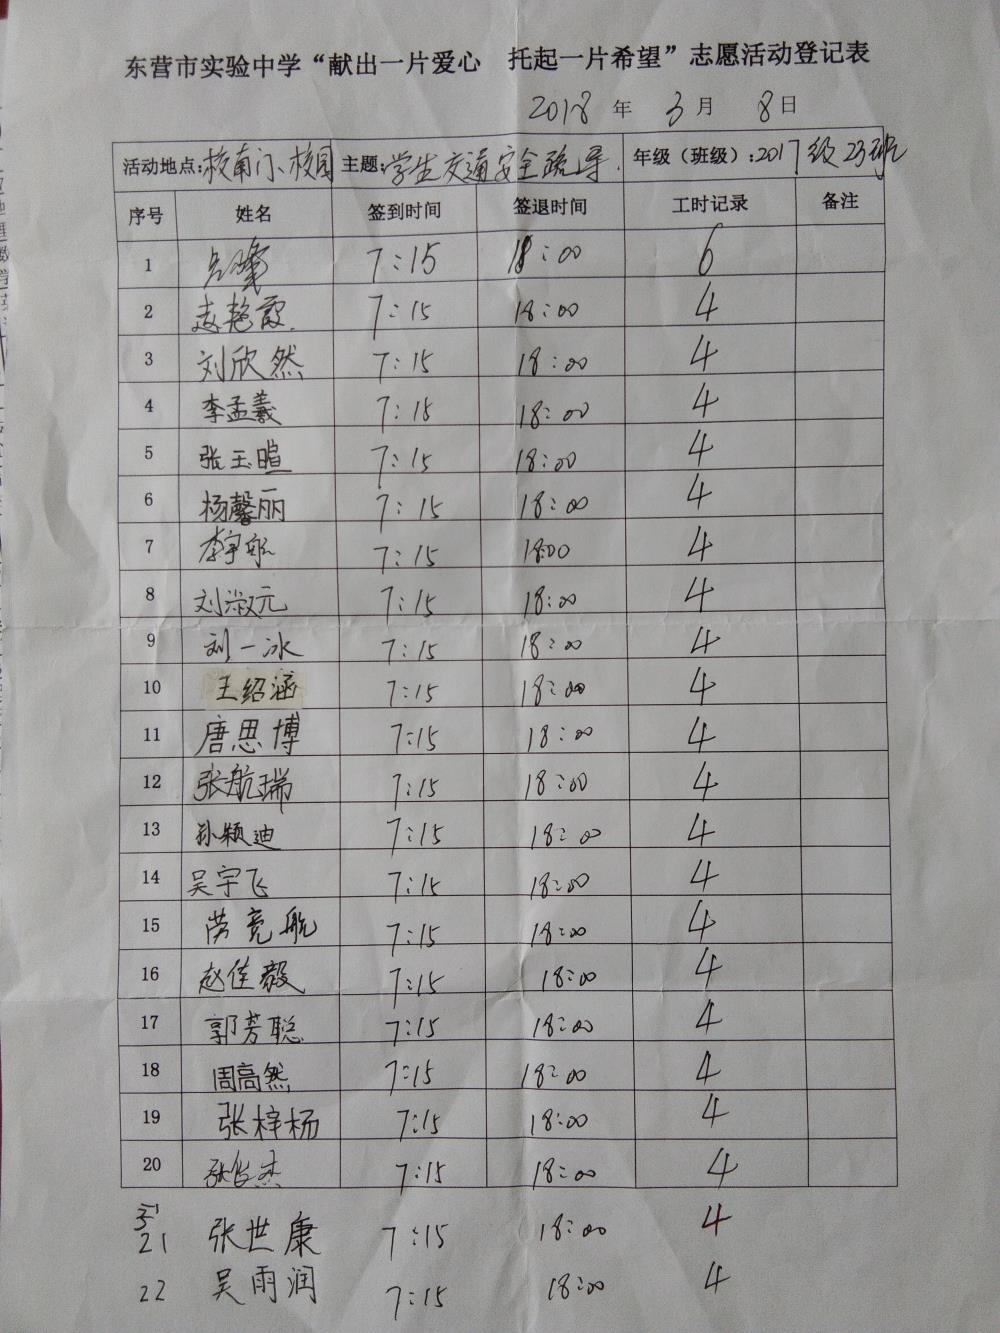 东营市实验中学“献出一片爱心 托起一片希望”志愿活动登记表
2018 年 3 月 8 日
活动地点:校南门、校园 主题:学生交通安全疏导. 年级（班级）:2017级23班
序号 姓名 签到时间 签退时间 工时记录 备注
1 7:15 18:00 6
2 赵艳霞. 7:15 18:00 4
3 刘欣然 7:15 18:00 4
4 李孟羲 7:15 18:00 4
5 张玉暄 7:15 18:00 4
6 杨馨丽 7:15 18:00 4
7 李宇航 7:15 18:00 4
8 刘淑元 7:15 18:00 4
9 刘一冰 7:15 18:00 4
10 王绍涵 7:15 18:00 4
11 唐思博 7:15 18:00 4
12 张航瑞 7:15 18:00 4
13 孙颖迪 7:15 18:00 4
14 吴宇飞 7:15 18:00 4
15 苟竞航 7:15 18:00 4
16 赵佳毅 7:15 18:00 4
17 郭芳聪 7:15 18:00 4
18 周高然 7:15 18:00 4
19 张梓杨 7:15 18:00 4
20 张俊杰 7:15 18:00 4
21 张世康 7:15 18:00 4
22 吴雨润 7:15 18:00 4